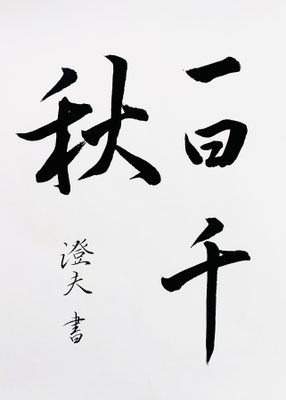 一日千
秋
澄夫書